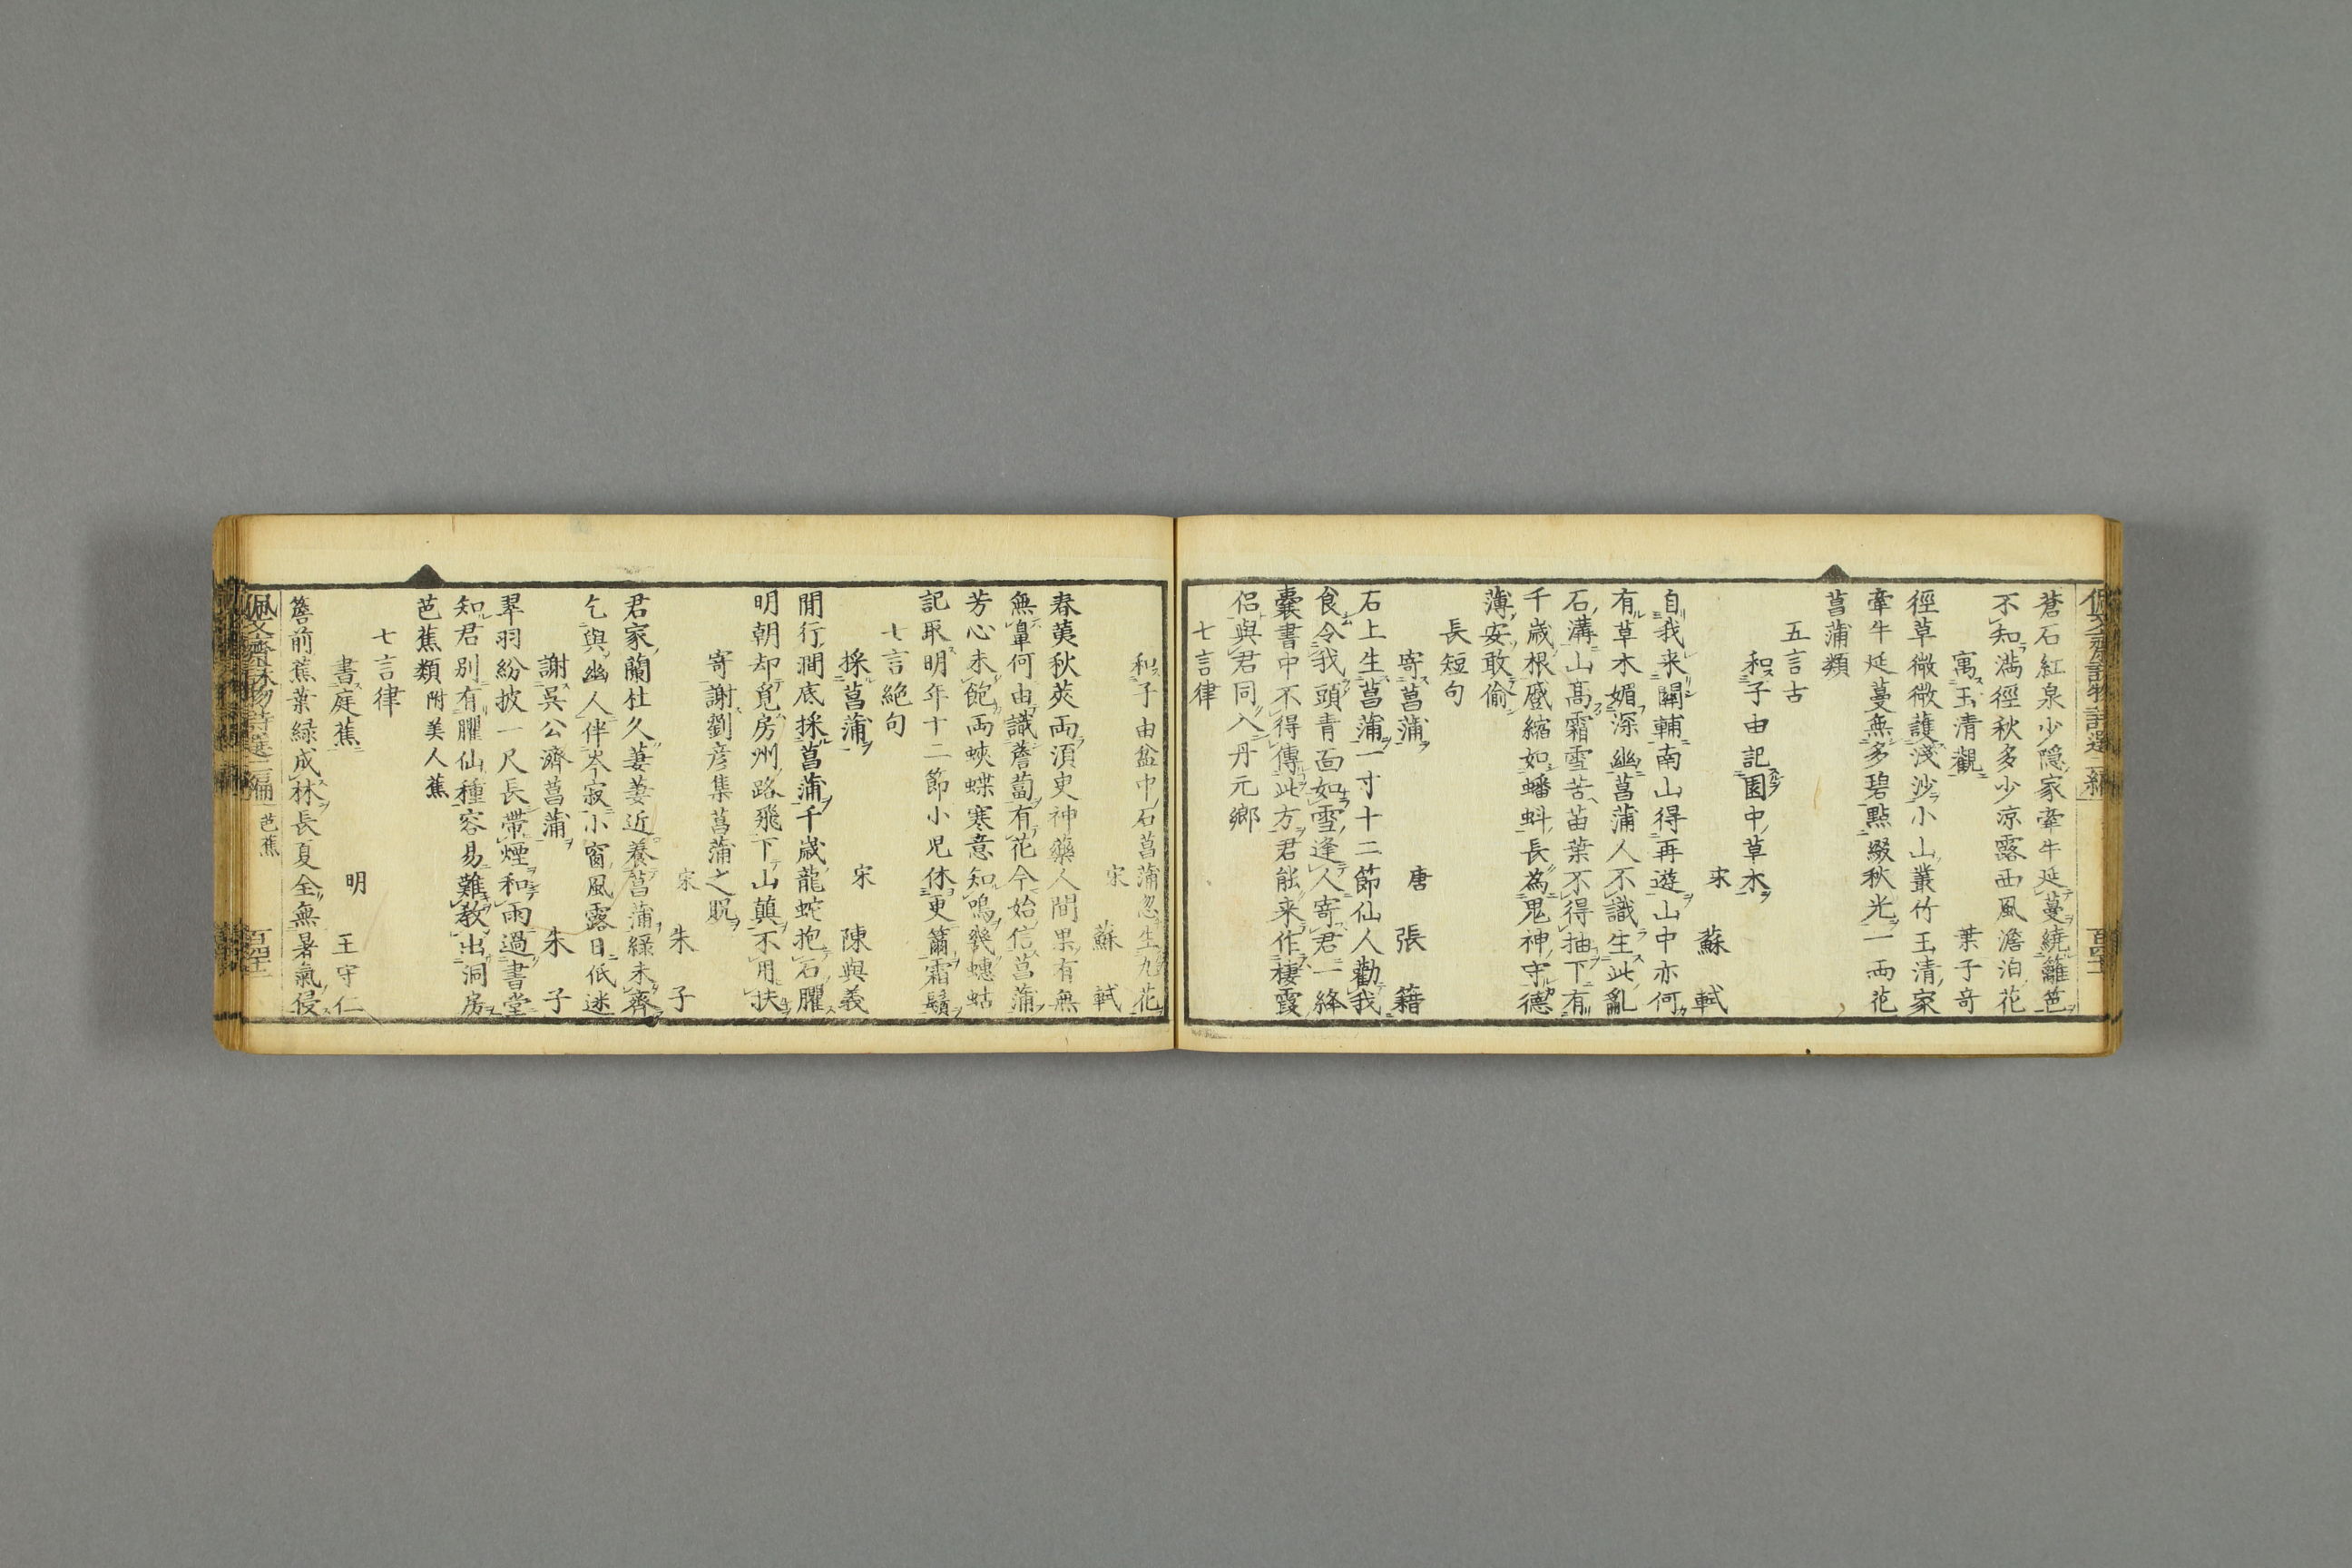 蒼石紅泉少隱家牽牛延蔓繞籬笆
不知滿徑秋多少涼露西風澹泊花
寓玉清觀 葉子奇
徑草微微護淺沙小山叢竹玉清家
牽牛延蔓無多碧點綴秋光一兩花
菖蒲類
五言古
和子由記園中草木
宋 蘇軾
自我来關輔南山得再遊山中亦何
有草木媚深幽菖蒲人不識生此亂
石溝山高霜雪苦苗葉不得抽下有
千歲根蹙縮如蟠蚪長為鬼神守德
薄安敢偷
長短句
寄菖蒲 唐 張籍
石上生菖蒲一寸十二節仙人勸我
食令我頭青面如雪逢人寄君一絳
囊書中不得傳此方君能来作棲霞
侶與君同入丹元鄉
七言律
和子由盆中石菖蒲忽生九花
宋 蘇軾
春荑秋莢兩須臾神藥人間果有無
無鼻何由識薝蔔有花今始信菖蒲
芳心未飽兩蛺蝶寒意知鳴幾蟪蛄
記取明年十二節小兒休更籋霜鬚
七言絕句
採菖蒲 宋 陳與義
閒行澗底採菖蒲千歲龍蛇抱石臞
明朝却覓房州路飛下山蘱不用扶
寄謝劉彦集菖蒲之貺
宋 朱子
君家蘭杜久萋萋近養菖蒲綠未齊
乞與幽人伴岑寂小窗風露日低迷
謝吳公濟菖蒲 朱子
翠羽紛披一尺長帶煙和雨過書堂
知君別有臞仙種容易難教出洞房
芭蕉類 附美人蕉
七言律
書庭蕉 明 王守仁
簷前蕉葉緑成林長夏全無暑氣侵
佩文齋詠物詩選二編 芭蕉